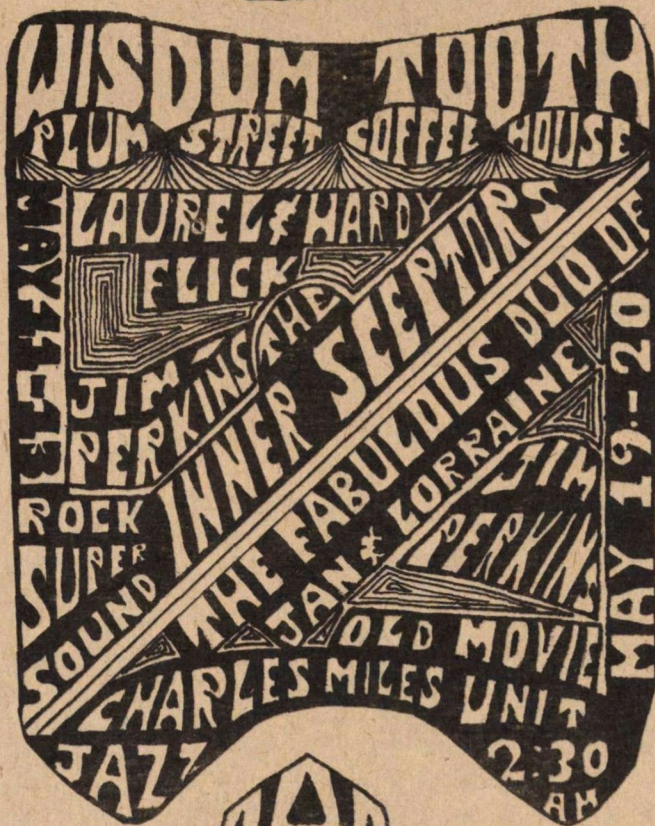 WISDUM TOOTH
PLUM STREET COFFEE HOUSE
MAY
LAUREL & HARDY
FLICK
JIM
PERKINS
THE
INNER SCEPTORS
ROCK
SUPER
SOUND
THE FABULOUS DUO OF
JAN & LORRAINE
JIM
PERKINS
MAY 19-20
OLD MOVIE
CHARLES MILES UNIT
JAZZ
2:30
AM